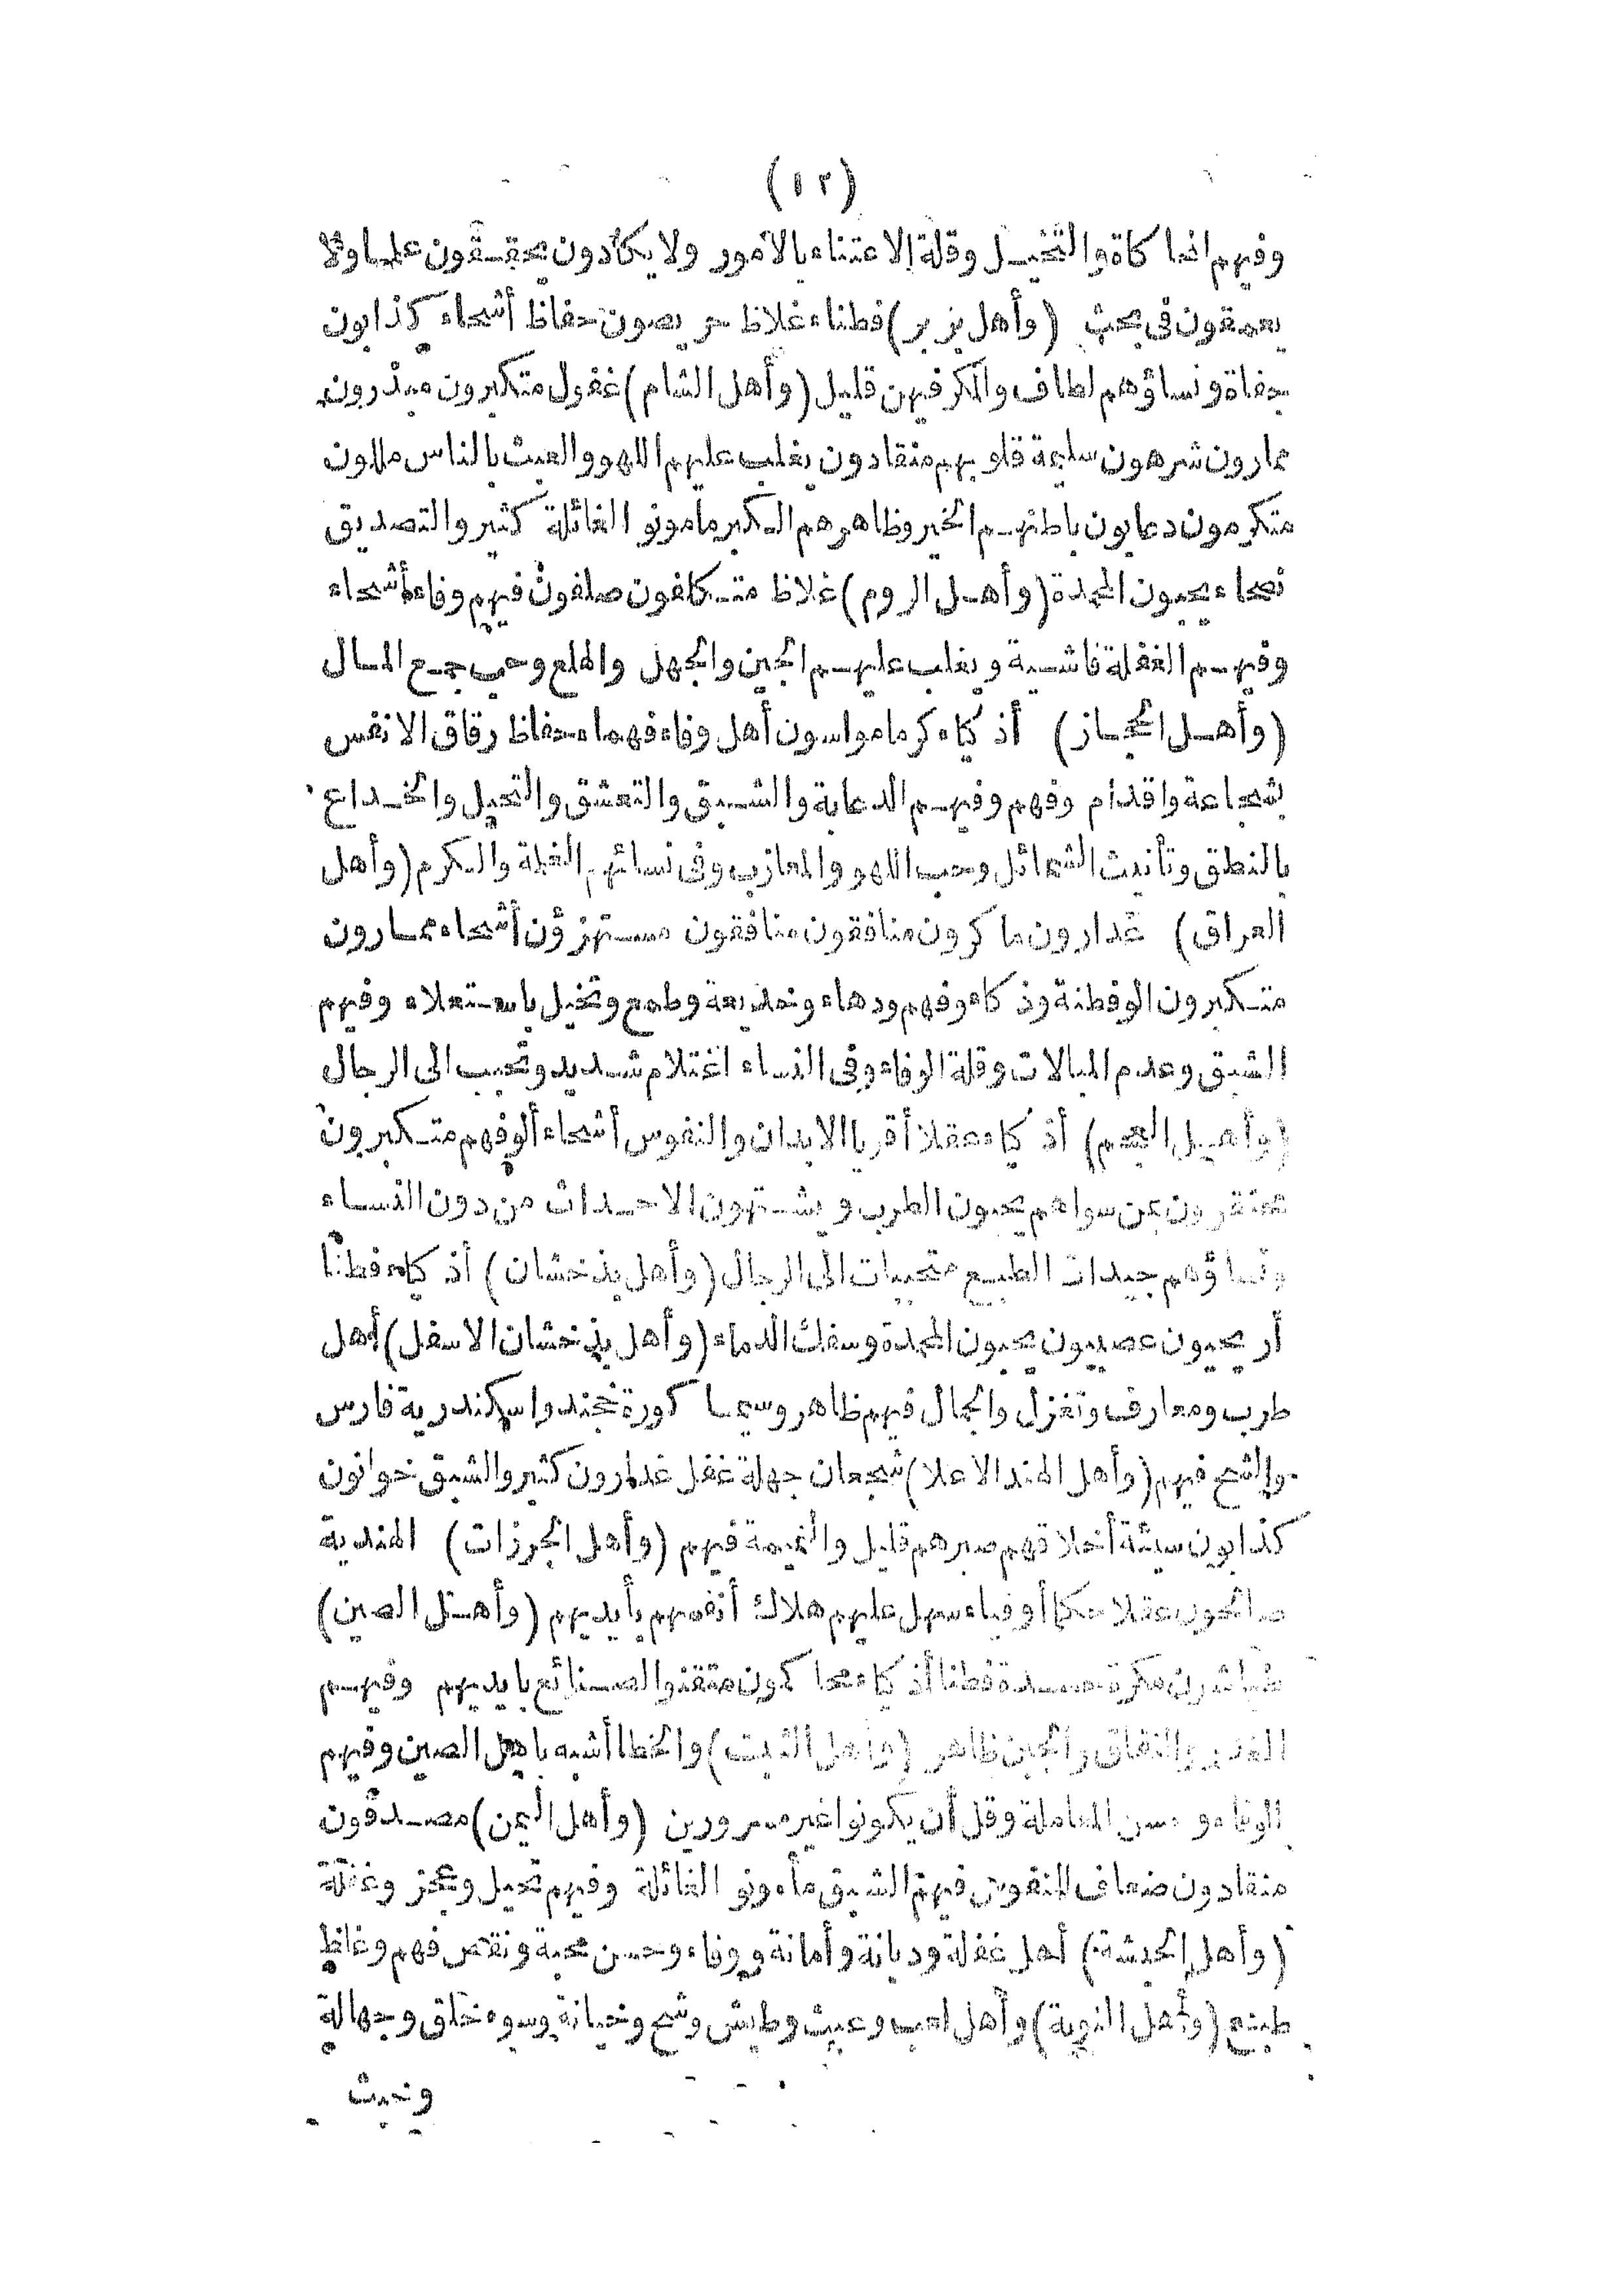 (١٢)
وفيهم المحاكاة والتخيل وقلة الاعتناء بالأمور ولا يكادون يحققون علما ولا
يعمقون في بحث (وأهل بربر) فطناء غلاظ حريصون حفاظ أشحاء كذابون
جفاة ونساؤهم لطاف والمكر فيهن قليل (وأهل الشام) غفول متكبرون مبذرون
ممارون شرهون سليمة قلوبهم منقادون يغلب عليهم اللهو والعبث بالناس ملاون
متكرمون دعابون باطنهم الخير وظاهرهم الكبر مأمونو الغائلة كثير والتصديق
نصحاء يحبون المحمدة (وأهل الروم) غلاظ متكلفون صلفون فيهم وفاء أشحاء
وفيهم الغفلة فاشية ويغلب عليهم الجبن والجهل والهلع وحب جمع المال
(وأهل الحجاز) أذكاء كرما مواسون أهل وفاء فهماء حفاظ رقاق الانفس
شجاعة واقدام وفهم وفيهم الدعابة والشبق والتعشق والتحيل والخداع
بالنطق وتأنيث الشمائل وحب اللهو والمعازب وفى نسائهم الغلمة والكرم (وأهل
العراق) غدارون ماكرون منافقون منافقون مستهزؤن أشحاء ممارون
متكبرون الوفطنة وذكاء وفهم ودهاء وخديعة وطمع وتخيل باستعلاء وفيهم
الشبق وعدم المبالات وقلة الوفاء وفى النساء اغتلام شديد وتحبب الى الرجال
(وأهل العجم) أذكاء عقلا أقويا الابدان والنفوس أشحاء ألوفهم متكبرون
محتقرون عن سواهم يحبون الطرب ويشتهون الاحداث من دون النساء
ونساؤهم جيدات الطبع متحببات الى الرجال (وأهل بذخشان) أذكاء فطنا
أريحيون عصبيون يحبون المحمدة وسفك الدماء (وأهل بذخشان الاسفل) أهل
طرب ومعارف وتغزل والجمال فيهم ظاهر وسيما كورة خجند واسكندرية فارس
والشح فيهم (وأهل الهند الاعلا) شجعان جهلة غفل غدارون كثير والشبق خوانون
كذابون سيئة أخلاقهم صبرهم قليل والنميمة فيهم (وأهل الجرزات) الهندية
صالحون عقلا حكما أوفياء سهل عليهم هلاك أنفسهم بأيديهم (وأهل الصين)
مكرة حسدة فطنا أذكاء محاكون متقنوا الصنائع بايديهم وفيهم
الغدر والنفاق والجبن ظاهر (وأهل التبت) والخطا أشبه باهل الصين وفيهم
الوفاء وحسن المعاملة وقل أن يكونوا غير مسرورين (وأهل اليمن) مصدقون
منقادون ضعاف النفوس فيهم الشبق مأمونو الغائلة وفيهم تحيل وعجز وغفلة
(وأهل الحبشة) أهل غفلة وديانة وأمانة ووفاء وحسن محبة ونقص فهم وغلظ
طبع (وأهل النوبة) وأهل لعب وعبث وطيش وشح وخيانة وسوء خلق وجهالة
وخبث